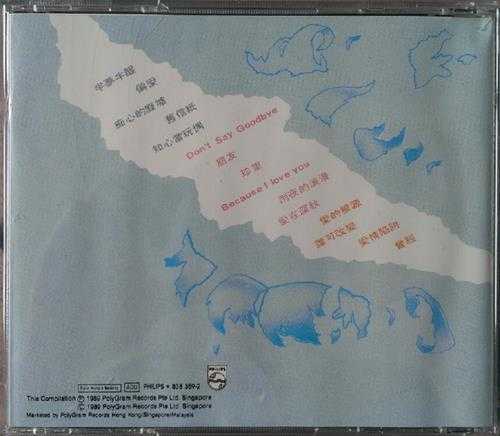 半夢半醒
痴心的廢墟
舊信紙
知心當玩偶
Don't Say Goodbye
朋友
珍重
Because I love you
雨夜的浪漫
愛在深秋
愛的根源
誰可改變
愛情陷阱
曾經
PHILIPS
PHILIPS • 838 359-2
This Compilation Ⓟ 1989 PolyGram Records Pte Ltd. Singapore
© 1989 PolyGram Records Pte Ltd. Singapore
Marketed by PolyGram Records Hong Kong/Singapore/Malaysia